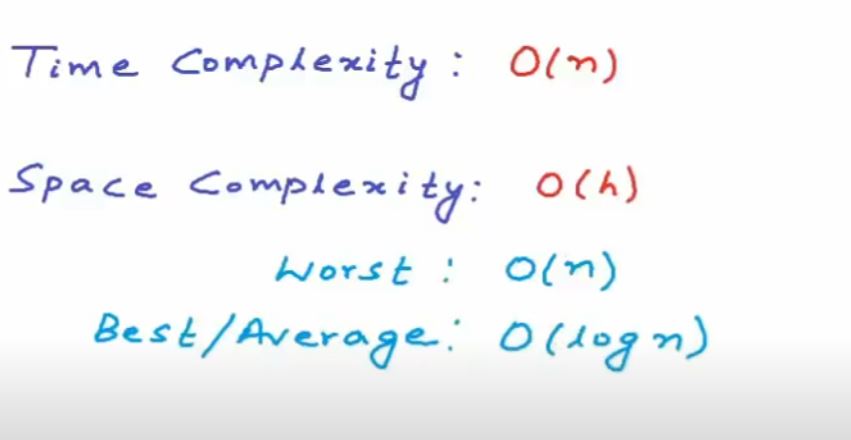 Time Complexity: O(n)
Space Complexity: O(h)
Worst: O(n)
Best/Average: O(log n)